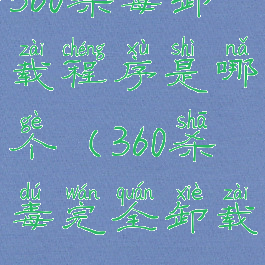 360杀毒卸
zài chéng xù shì nǎ
载程序是哪
gè shā
个（360杀
dú wán quán xiè zài
毒完全卸载